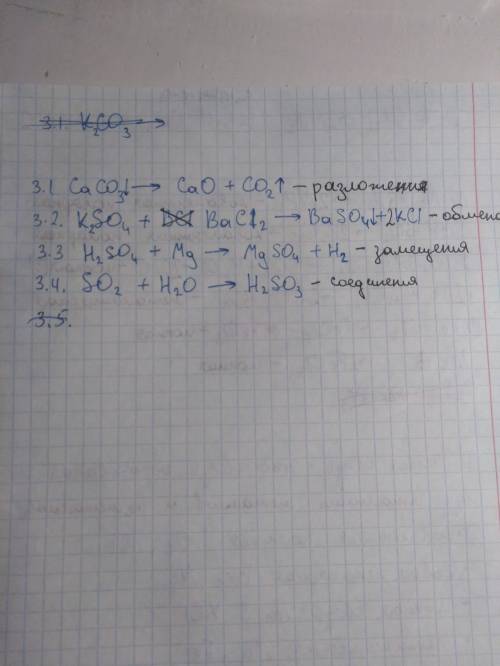 3.1. K₂CO₃ →
3.1 CaCO₃↓ → CaO + CO₂↑ – разложения
3.2. K₂SO₄ + BaCl₂ → BaSO₄↓+2KCl – обмена
3.3 H₂SO₄ + Mg → MgSO₄ + H₂ – замещения
3.4. SO₂ + H₂O → H₂SO₃ – соединения
3.5.